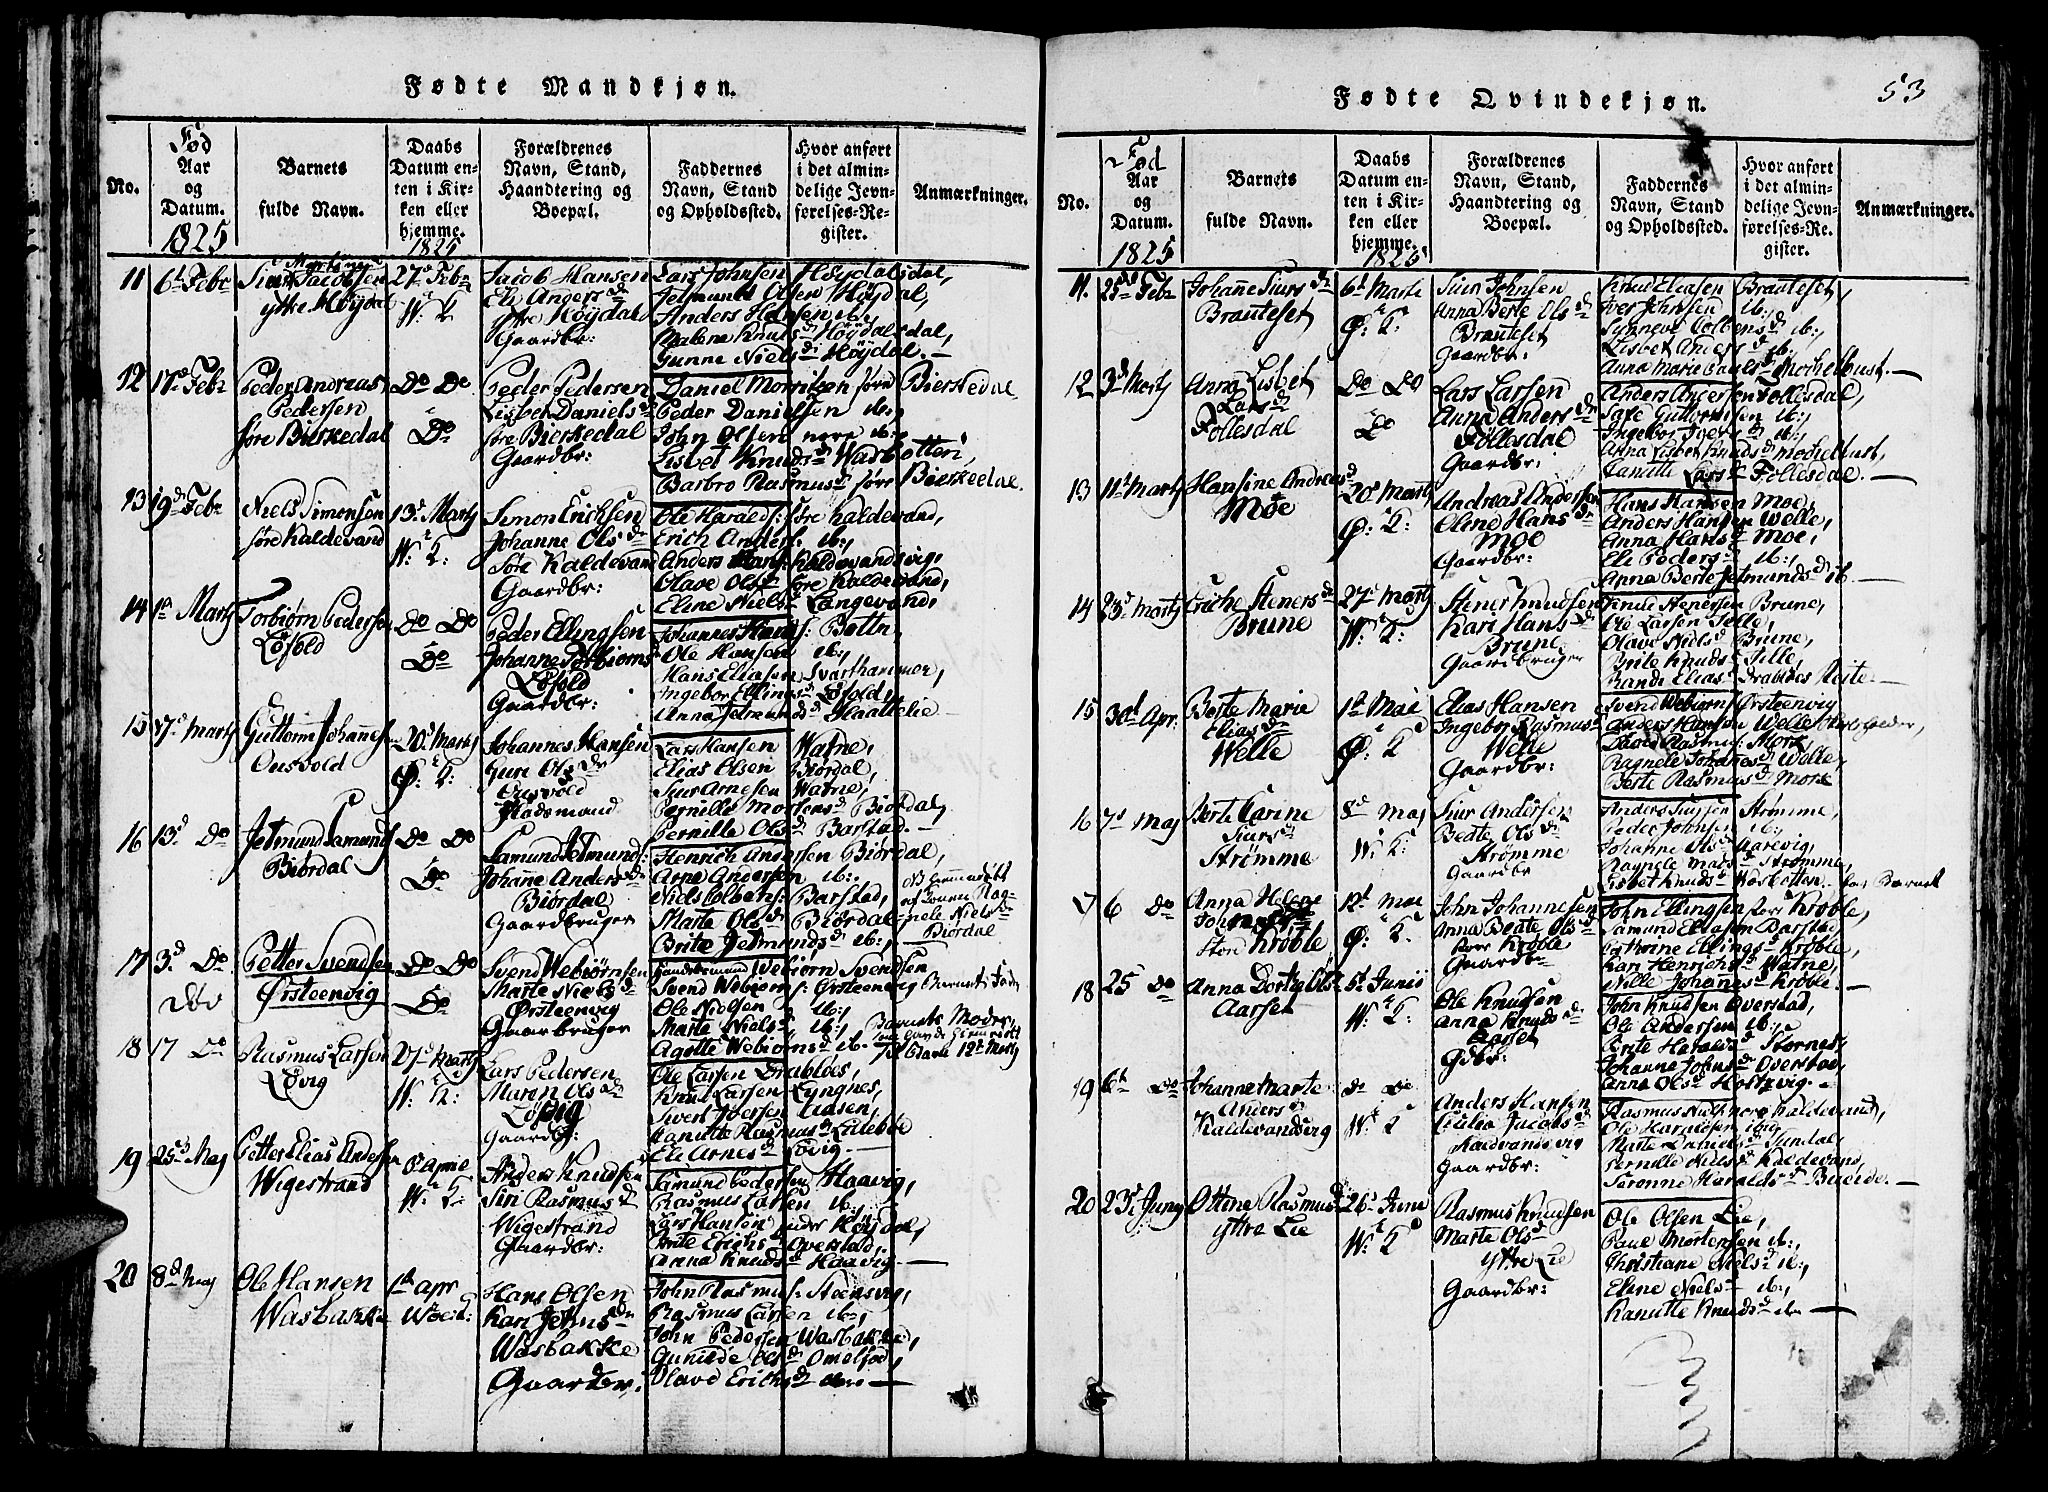 Fødte Mandkjøn.
No.
Fød
Aar
og
Datum.
1825
Barnets
fulde Navn.
Daabs
Datum en-
ten i Kir-
ken eller
hjemme.
1825
Forældrenes
Navn, Stand,
Haandtering og
Boepæl.
Faddernes
Navn, Stand
og Opholdssted.
Hvor anført
i det almin-
delige Jevn-
førelses-Re-
gister.
Anmærkninger.
11
6t Febr
Jacobsen
ytre Høydal
27de Febr
W: K
Jacob Hansen
Eli Anders d
ytre Høydal
Gaardbr:
Lars Johnsen Høydalsdal,
Jetmund Olsen Høydal,
Anders Hansen ib:,
Malene Knuds d Høydalsdal,
Gunne Niels d Høydal. —
12
17de Febr
Peder Andreas
Pedersen
søre Bierkedal
Do Do
Do
Peder Pedersen
Lisbet Daniels d
søre Bierkedal
Gaardbr:
Daniel Monsen søre Bierkedal
Peder Danielsen ib:,
John Olsen nore ib:,
Lisbet Knuds d Wasbotten,
Barbro Rasmus d søre Bierkedal.
13
19de Febr
Niels Simonsen
søre Kaldevand
13de Marty
W: K:
Simon Erichsen
Johanne Ols d
søre Kaldevand
Gaardbr:
Ole Haralds: søre Kaldevand,
Erich Anders: ib:,
Anders Hans: Kaldevandsvig,
Olave Ols d søre Kaldevand,
Eline Niels d Langevand,
14
1st Marty
Torbiørn Pedersen
Løfold
Do Do
Do
Peder Ellingsen
Johanne Torbiørns
Løfold
Gaardbr:
Johannes Hans: Botn,
Ole Hansen ib:,
Hans Eliasen Svarthammer,
Ingebor Ellings d Løfold,
Anna Jetmunds d Haattelie
15
17de Marty
Guttorm Johannes
Ousvold
20de Marty
Ø: K:
Johannes Hansen
Guri Ols d
Ousvold
Huusmand
Lars Hansen Watne,
Elias Olsen Biørdal,
Siur Arnesen Watne,
Pernille Mortens d Biørdal,
Pernille Ols d Barstad. —
16
13d Do
Jetmund Samunds
Biørdal
Do Do
Do
Samund Jetmunds:
Johanne Anders d
Biørdal
Gaardbruger
Henrich Andersen Biørdal,
Arne Andersen ib:,
Niels Colbens: Barstad,
Marte Ols d Biørdal
Brite Jetmunds d ib:,
NB hjemmedøbt
af Konen Rag-
nele Niels d
Biørdal
17
3d Do
død
Petter Svendsen
Ørsteenvig
Do Do
Do
Svend Webiørnsen
Marte Niels d
Ørsteenvig
Gaarbruger
Huusmand Webiørn Svendsen
Svend Webiørns: Ørsteenvig Barnets Fader
Ole Nielsen ib:,
Marte Niels d ib:, Barnets Moder,
Agotte Webiørns d ib.
18
17 Do
Rasmus Larsen
Løvig
27de Marty
W: K:
Lars Pedersen
Maren Ols d
Løvig
Gaardbr:
Ole Larsen Drabløes,
Knud Larsen Lyngnes,
Sivert Iversen Aasen,
Kanutte Rasmus d Lillebøe
Ele Arnes d Løvig. —
19
25de Marty
Petter Elias Anders
Wigestrand
6t April
W: K:
Anders Knudsen
Siri Rasmus d
Wigestrand
Gaardbr:
Samund Pedersen Haavig,
Rasmus Larsen ib:,
Lars Hansen under Høydal,
Brite Erichs d Overstad,
Anna Knuds d Haavig. —
20
8de May
Ole Hansen
Wasbakke
1st apr
Wold:
Hans Olsen
Kari Johns d
Wasbakke
Gaardbr:
John Rasmus: Steensvig,
Rasmus Larsen ib:,
John Pedersen Wasbakke,
Gunilde Ols d Omelfod,
Olave Erichs d ib: —
53
Fødte Qvindekjøn.
No.
Fød
Aar
og
Datum.
1825
Barnets
fulde Navn.
Daabs
Datum en-
ten i Kir-
ken eller
hjemme.
1825
Forældrenes
Navn, Stand,
Haandtering og
Boepæl.
Faddernes
Navn, Stand
og Opholdssted.
Hvor anført
i det almin-
delige Jevn-
førelses-Re-
gister.
Anmærkninger.
11.
25de Febr
Johanne Siurs d
Brauteset
6t Marti
Ø: K:
Siur Johnsen
Anna Berte Ols d
Brauteset
Gaardbr:
Knud Eliasen Brauteset,
Iver Johnsen ib:,
Synneve Colbens d ib:,
Lisbet Anders d ib.
Anna Marie Pauls d Mochelbust. —
12
3d Marty
Anna Lisbet
Lars d
Follesdal
Do Do
Do
Lars Larsen
Anna Anders d
Føllesdal
Gaardbr:
Anders Andersen Follesdal,
Save Guttormsen ib:,
Ingebor Ivers d ib:,
Anna Lisbet Knuds d Mochelbust,
Kanutte Lars d Follesdal. —
13
11t Marty
Hansine Andreas d
Moe
20de Marty
Ø: K:
Andreas Andersen
Oline Hans d
Moe
Gaardbr:
Hans Hansen Moe,
Anders Hansen Welle,
Anna Hans d Moe,
Eli Peders d ib:,
Anna Berte Jetmunds d ib —
14
23d Marty
Eriche Steners d
Brune
27de Marty
W: K:
Stener Knudsen
Kari Hans d
Brune
Gaardbruger
Knud Stenersen Brune,
Ole Larsen Tolle,
Olave Niels d Brune,
Brite Knuds d Tille,
Rande Elias d Drabløes Reite. —
15
30d Apr.
Berte Marie
Elias d
Welle
1st Mai
Ø: K
Elias Hansen
Ingebor Rasmus d
Welle
Gaardbr:
Svend Webiørns Ørsteenvig
Anders Hansen Welle
David Rasmus: Mork
Ragnele Johannes d Welle,
Berte Rasmus d Mork
16
7de May
Berte Karine
Siurs d
Strømme
8de May
W: K:
Siur Andersen
Beate Ols d
Strømme
Gaardbr
Anders Siursen Strømme
Peder Johnsen ib:,
Johanne Ols d Aarevig,
Ragnele Mads d Strømme,
Lisbet Knuds d Wasbotten. bar Barnet
17
6 Do
Anna Helene
Johns d
Store Krøble
12t Mai
Ø: K:
John Johannesen
Anna Beate Ols d
Store Krøble
Gaardbr
John Ellingsen store Krøble,
Samund Eliasen Barstad,
Cathrine Ellings d Krøble,
Kari Henrichs d Watne,
Nille Johannes d Krøble. —
18
25 Do
Anna Dorthe Ols
Aarset
5t Junii
W: K:
Ole Knudsen
Anna Knuds d
Aarset
Gdbr:
John Knudsen Overstad,
Ole Andersen ib:,
Brite Haralds d Størnes,
Johanne Johns d Overstad,
Anna Ols d Hostevig. —
19
6t Do
Johanne Marte
Anders d
Kaldevandsvig
Do Do
W: K
Anders Hansen
Cicilia Jacobs d
Kaldevandsvig
Gaardbr:
Rasmus Niels nore Kaldevand,
Ole Haraldsen ibig
Marte Daniels d Sundal,
Pernille Niels d Kaldevand,
Saronne Haralds d Bueide. —
20
23de Juny
Ottine Rasmus d
ytre Lie
26de June
W: K
Rasmus Knudsen
Marte Ols d
Ytre Lie
Gaardbr:
Ole Olsen Lie,
Paul Mortensen ib:,
Christiane Niels d ib:,
Eline Niels d ib:,
Kanutte Knuds d ib: —